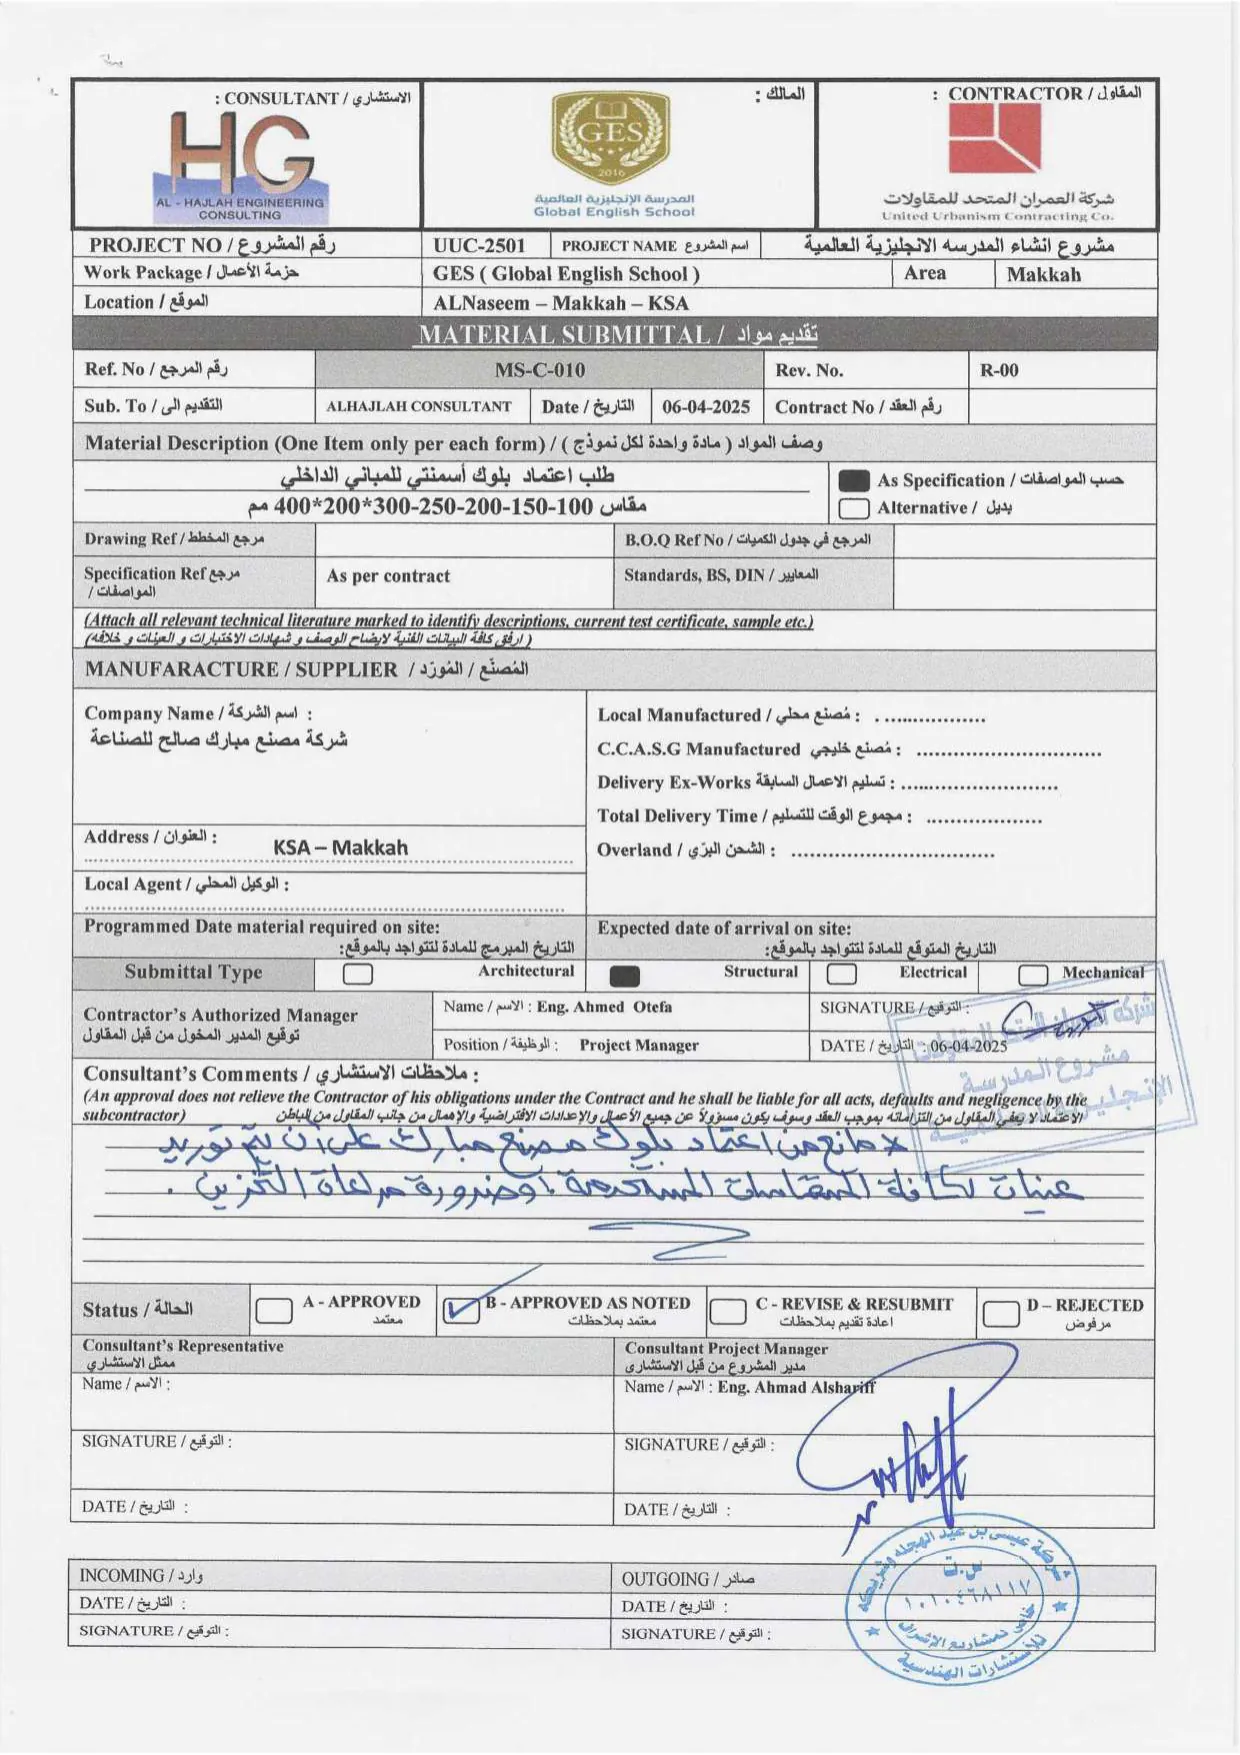 الاستشاري / CONSULTANT :
HG
AL - HAJLAH ENGINEERING
CONSULTING
المالك :
GES
2016
المدرسة الإنجليزية العالمية
Global English School
المقاول / CONTRACTOR :
شركة العمران المتحد للمقاولات
United Urbanism Contracting Co.
PROJECT NO / رقم المشروع UUC-2501 PROJECT NAME اسم المشروع مشروع انشاء المدرسه الانجليزية العالمية
Work Package / حزمة الأعمال GES ( Global English School ) Area Makkah
Location / الموقع ALNaseem – Makkah – KSA
MATERIAL SUBMITTAL / تقديم مواد
Ref. No / رقم المرجع MS-C-010 Rev. No. R-00
Sub. To / التقديم الى ALHAJLAH CONSULTANT Date / التاريخ 06-04-2025 Contract No / رقم العقد
Material Description (One Item only per each form) / ( مادة واحدة لكل نموذج ) وصف المواد
طلب اعتماد بلوك أسمنتي للمباني الداخلي
مقاس 100-150-200-250-300*200*400 مم
As Specification / حسب المواصفات
Alternative / بديل
Drawing Ref / مرجع المخطط B.O.Q Ref No / المرجع في جدول الكميات
Specification Ref مرجع المواصفات / As per contract Standards, BS, DIN / المعايير
(Attach all relevant technical literature marked to identify descriptions, current test certificate, sample etc.)
( ارفق كافة البيانات الفنية لايضاح الوصف و شهادات الاختبارات و العينات و خلافه)
MANUFARACTURE / SUPPLIER / المُصنّع / المُورّد
Company Name / اسم الشركة :
شركة مصنع مبارك صالح للصناعة
Address / العنوان : KSA – Makkah
Local Agent / الوكيل المحلي :
Local Manufactured / مُصنع محلي : ..................
C.C.A.S.G Manufactured مُصنع خليجي : ..............................
Delivery Ex-Works تسليم الاعمال السابقة : .........................
Total Delivery Time / مجموع الوقت للتسليم : ...................
Overland / الشحن البرّي : .................................
Programmed Date material required on site:
التاريخ المبرمج للمادة للتواجد بالموقع:
Expected date of arrival on site:
التاريخ المتوقع للمادة للتواجد بالموقع:
Submittal Type Architectural Structural Electrical Mechanical
Contractor’s Authorized Manager
توقيع المدير المخول من قبل المقاول
Name / الاسم : Eng. Ahmed Otefa SIGNATURE / التوقيع :
Position / الوظيفة : Project Manager DATE / التاريخ : 06-04-2025
مشروع المدرسة
Consultant’s Comments / ملاحظات الاستشاري :
(An approval does not relieve the Contractor of his obligations under the Contract and he shall be liable for all acts, defaults and negligence by the
subcontractor) الاعتماد لا يعفي المقاول من التزاماته بموجب العقد وسوف يكون مسؤولاً عن جميع الأعمال والإعدادات الافتراضية والإهمال من جانب المقاول من الباطن
لا مانع من اعتماد بلوك مصنع مبارك على أن يتم توريد
عينات لكافة المقاسات المستخدمة وضرورة مراعاة التخزين .
Status / الحالة A - APPROVED معتمد B - APPROVED AS NOTED معتمد بملاحظات C - REVISE & RESUBMIT اعادة تقديم بملاحظات D – REJECTED مرفوض
Consultant’s Representative
ممثل الاستشاري
Name / الاسم :
SIGNATURE / التوقيع :
DATE / التاريخ :
Consultant Project Manager
مدير المشروع من قبل الاستشاري
Name / الاسم : Eng. Ahmad Alshariff
SIGNATURE / التوقيع :
DATE / التاريخ :
INCOMING / وارد OUTGOING / صادر
DATE / التاريخ : DATE / التاريخ :
SIGNATURE / التوقيع : SIGNATURE / التوقيع :
شركة عيسى بن عيد الهجله وشريكه
س.ت
١٠١٠٤٦٨١١٧
خاص بمشاريع الإشراف
للاستشارات الهندسية